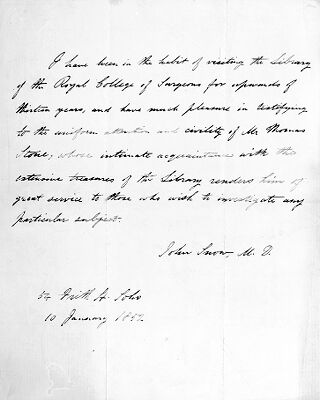 I have been in the habit of visiting the Library
of the Royal College of Surgeons for upwards of
thirteen years, and have much pleasure in testifying
to the uniform attention and civility of Mr Thomas
Stone; whose intimate acquaintance with the
extensive treasures of the Library renders him of
great service to those who wish to investigate any
particular subject.
John Snow, M.D.
54 Frith St Soho
10 January 1852